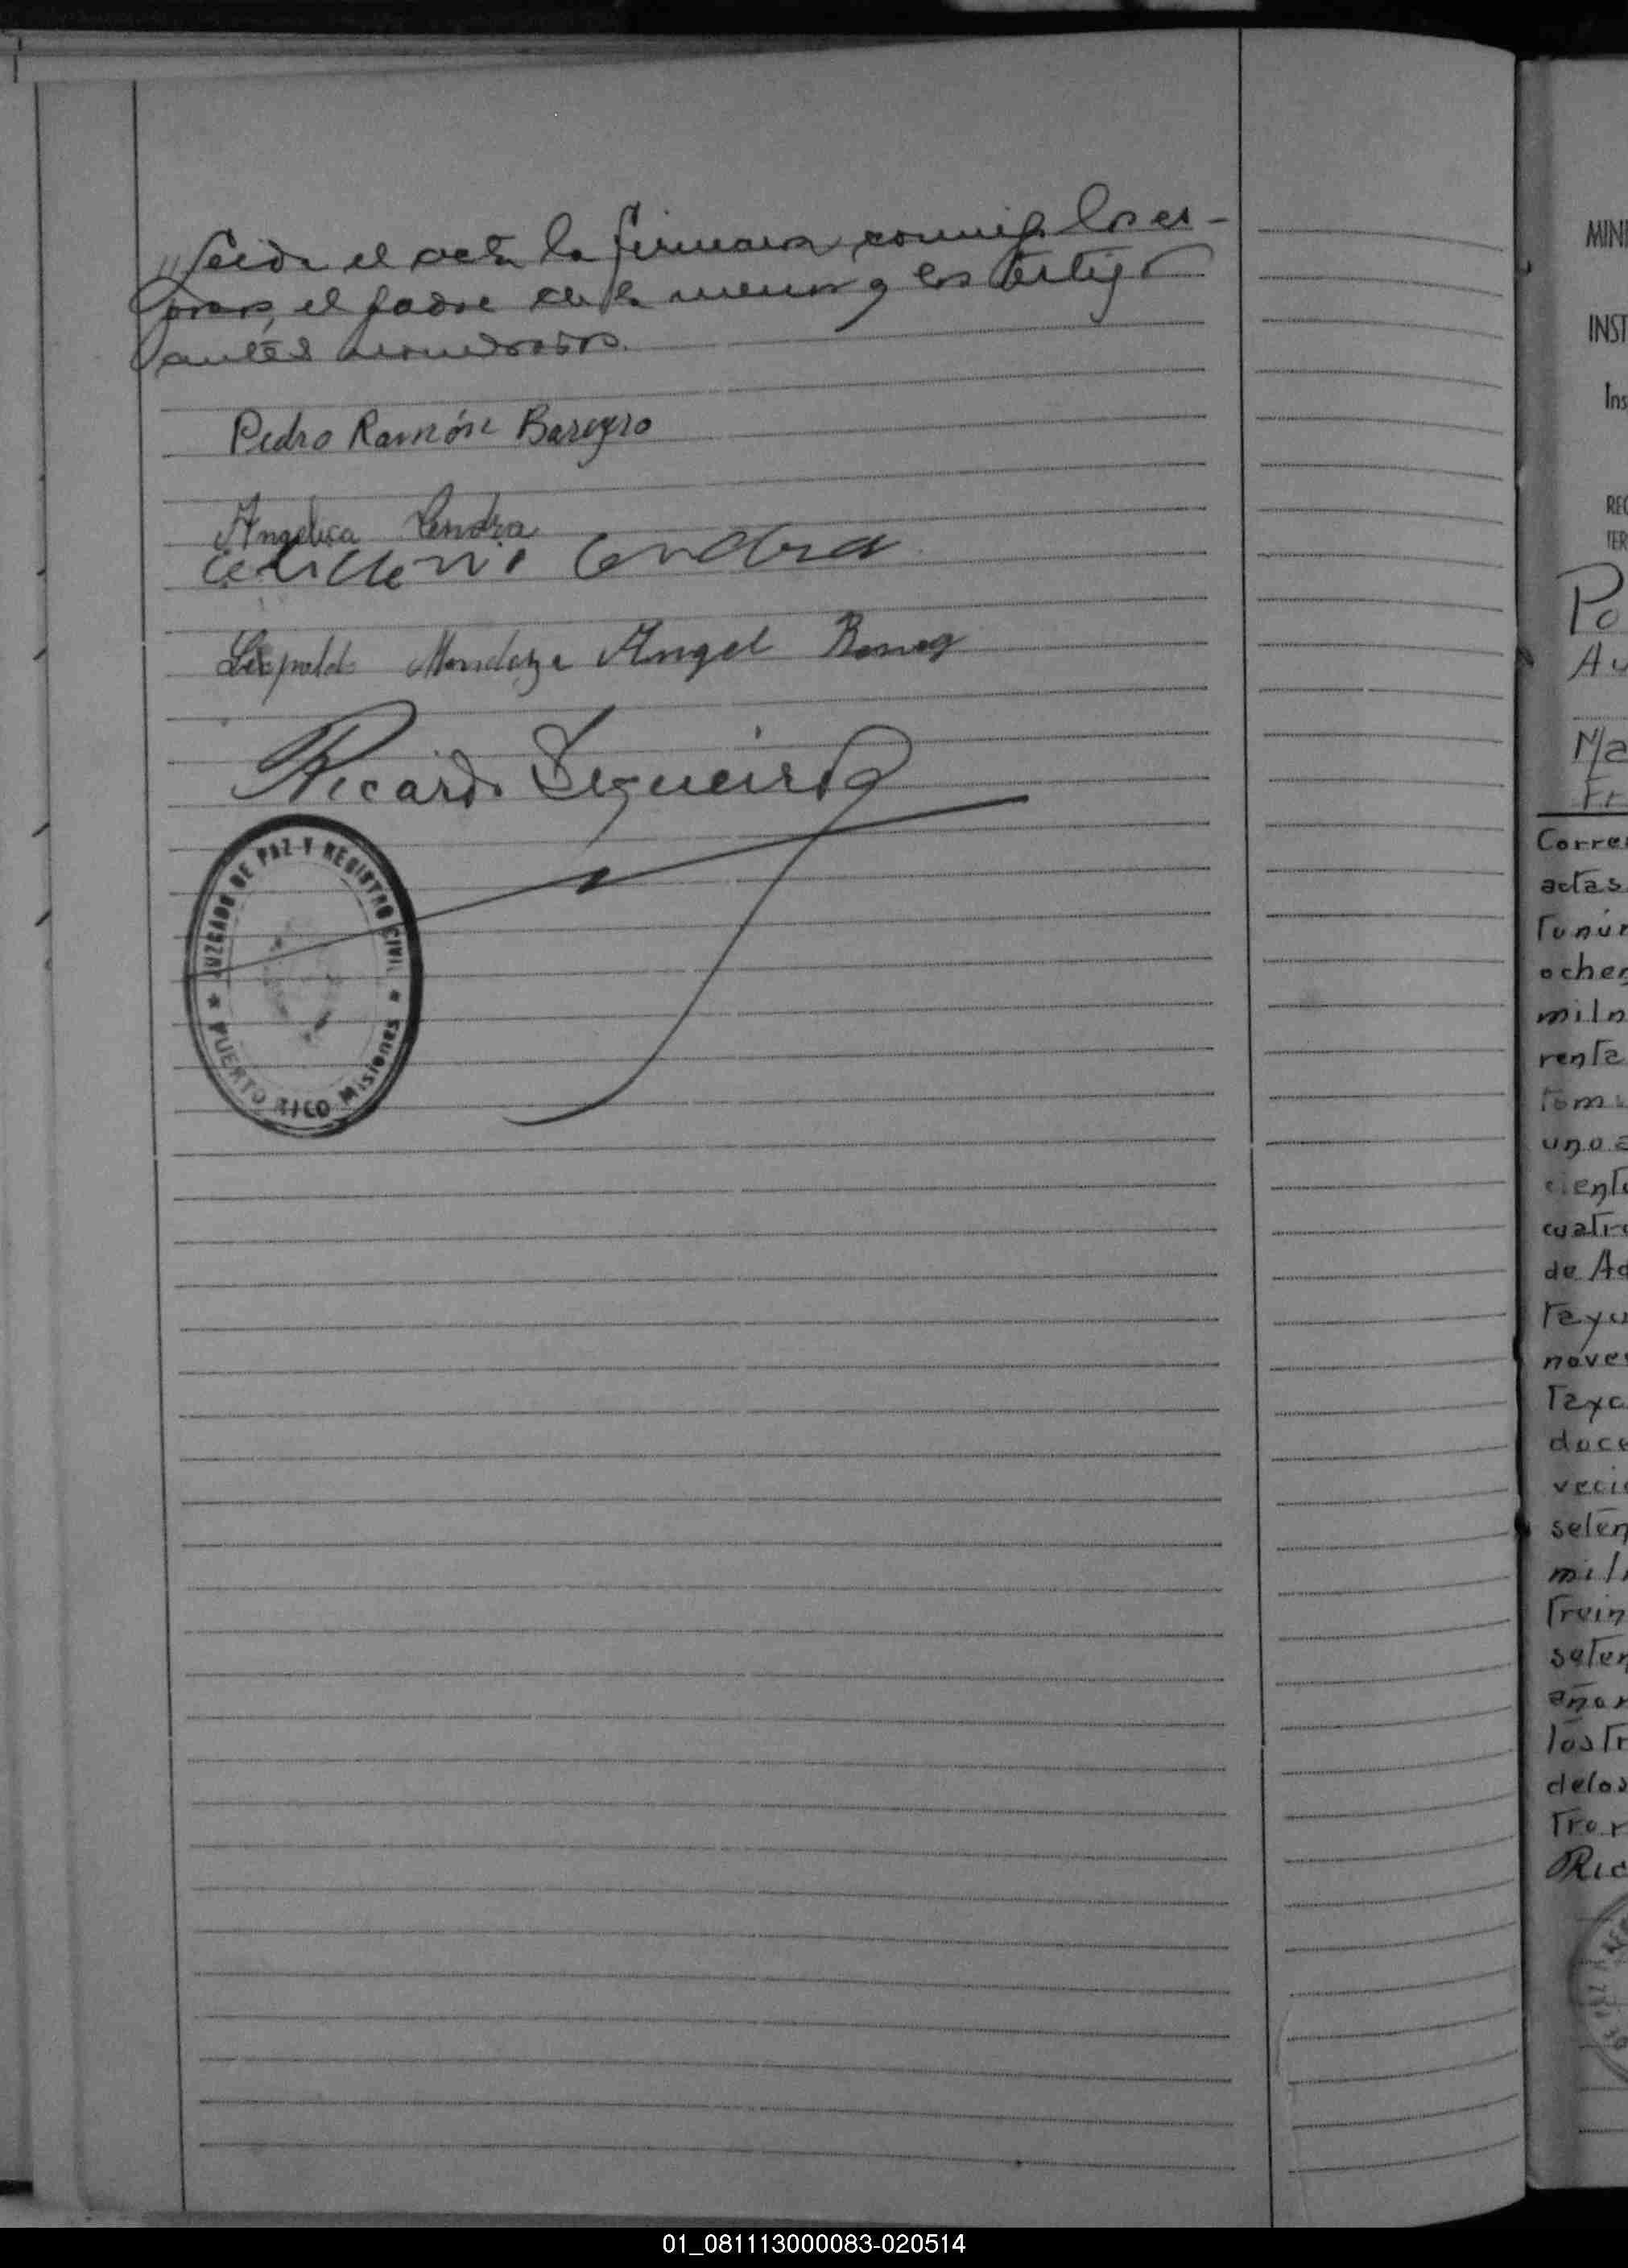 Leida el acta la firman conmigo los es-
posos, el padre de la menor y los testigos
antes nombrados.
Pedro Ramón
Angelica Lendra
Lendra
Leopoldo Mendoza Angel
Ricardo Segueira
JUZGADO DE PAZ Y REGISTRO CIVIL
PUERTO RICO Misiones
MINI
INST
Ins
REG
TER
Po
Au
Ma
Fr
Corre
actas
Tunún
ochen
miln
renta
tomo
uno a
ciento
cuatro
de Ad
Tayu
nove
Tayc
doce
veci
seten
mil
Trein
seten
años
los Tr
delos
Tror
Ric
01_081113000083-020514